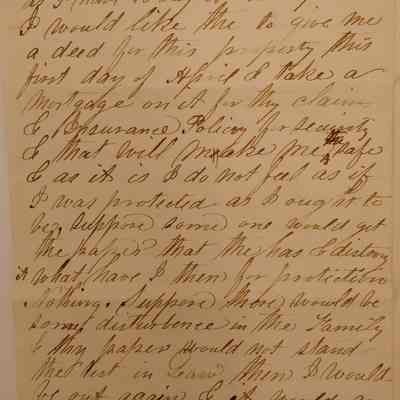 I would like the to give me
a deed for this property this
first day of April & take a
Mortgage on it for thy claim
& Insurance Policy for security
& that will make me safe
& as it is I do not feel as if
I was protected as I ought to
be, suppose some one would get
the paper that the has & distroy
it what have I then for protection
Nothing. Suppose there would be
some disturbence in the Family
& this paper would not stand
the test in Law then I would
be out again & it would